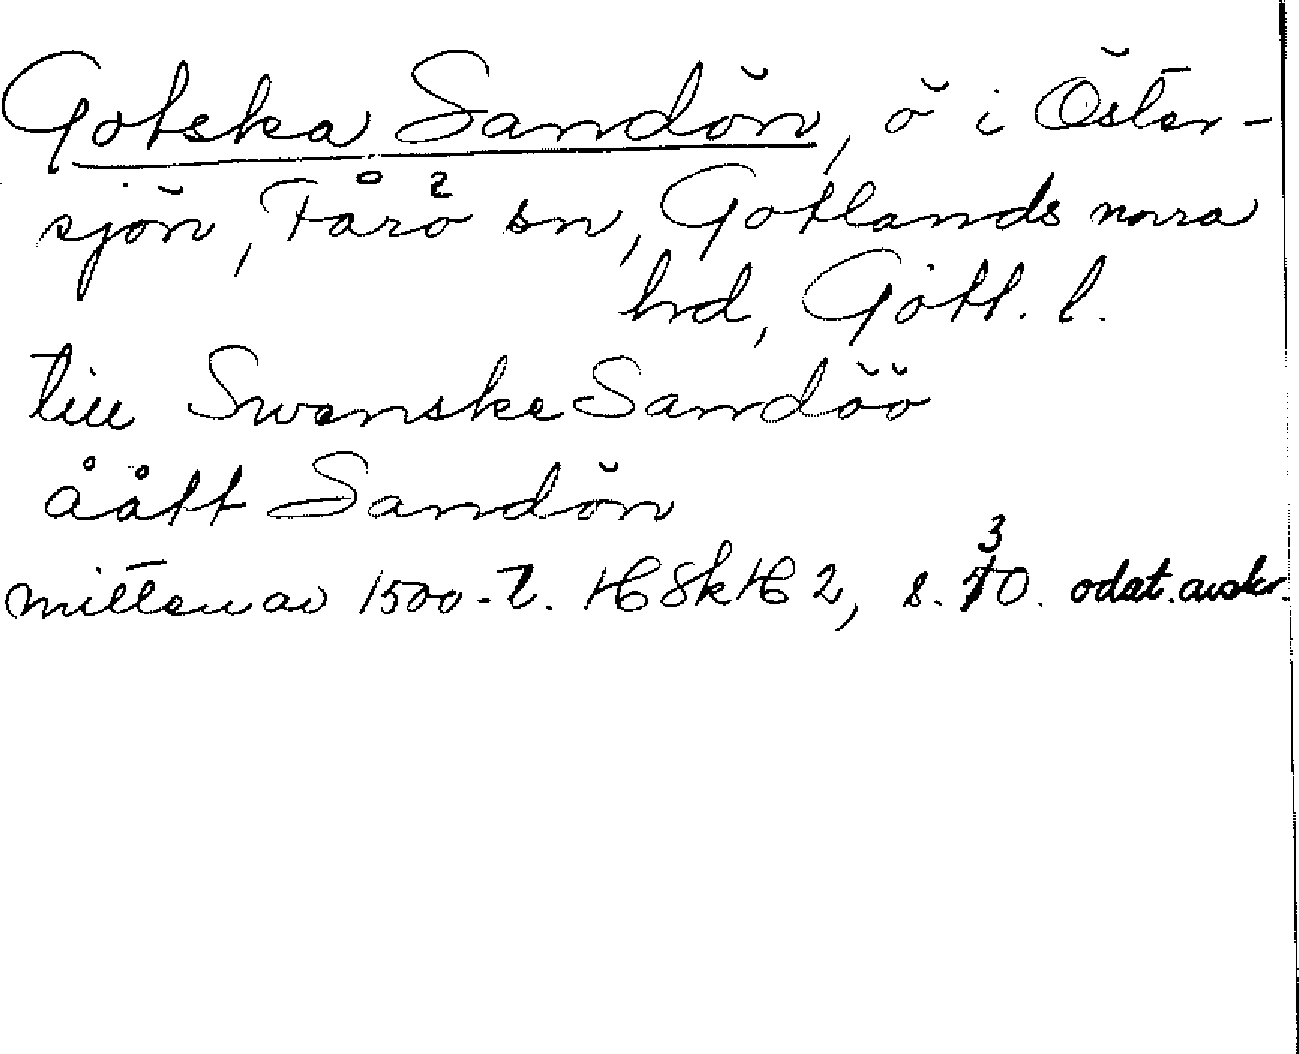 Gotska Sandön, ö i Öster-
sjön, Fårö sn, Gotlands norra
hrd, Gotl. l.
till Swenske Sandöö
åått Sandön
mitten av 1500-t. HSkH 2, s. 30. odat. avskr.